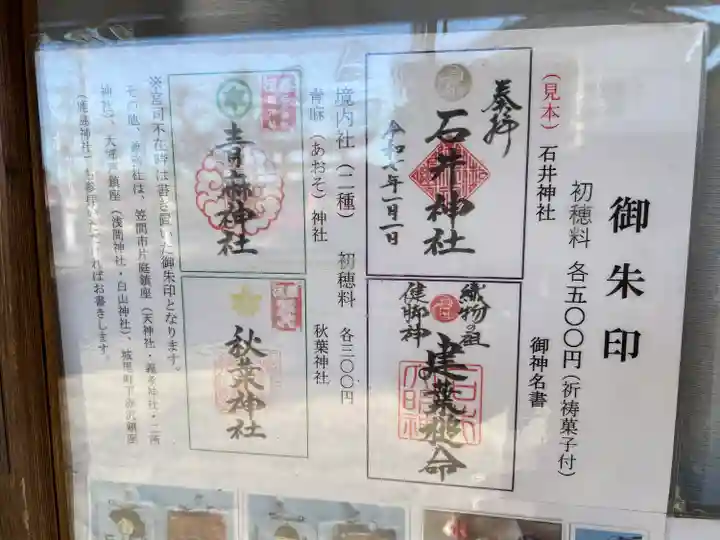 御朱印
初穂料 各五〇〇円(祈祷菓子付)
(見本) 石井神社
御神名書
奉拝
石井神社
令和七年一月一日
織物の祖
建葉槌命
健脚神
境内社(二種) 初穂料 各三〇〇円
青麻(あおそ)神社
秋葉神社
青麻神社
秋葉神社
※宮司不在時は書き置いた御朱印となります。
その他、兼務社は、笠間市片庭鎮座(天神社・
神社)、鎮座(浅間神社・白山神社)、城里町下赤沢鎮座
(鹿島神社)
お書きします。